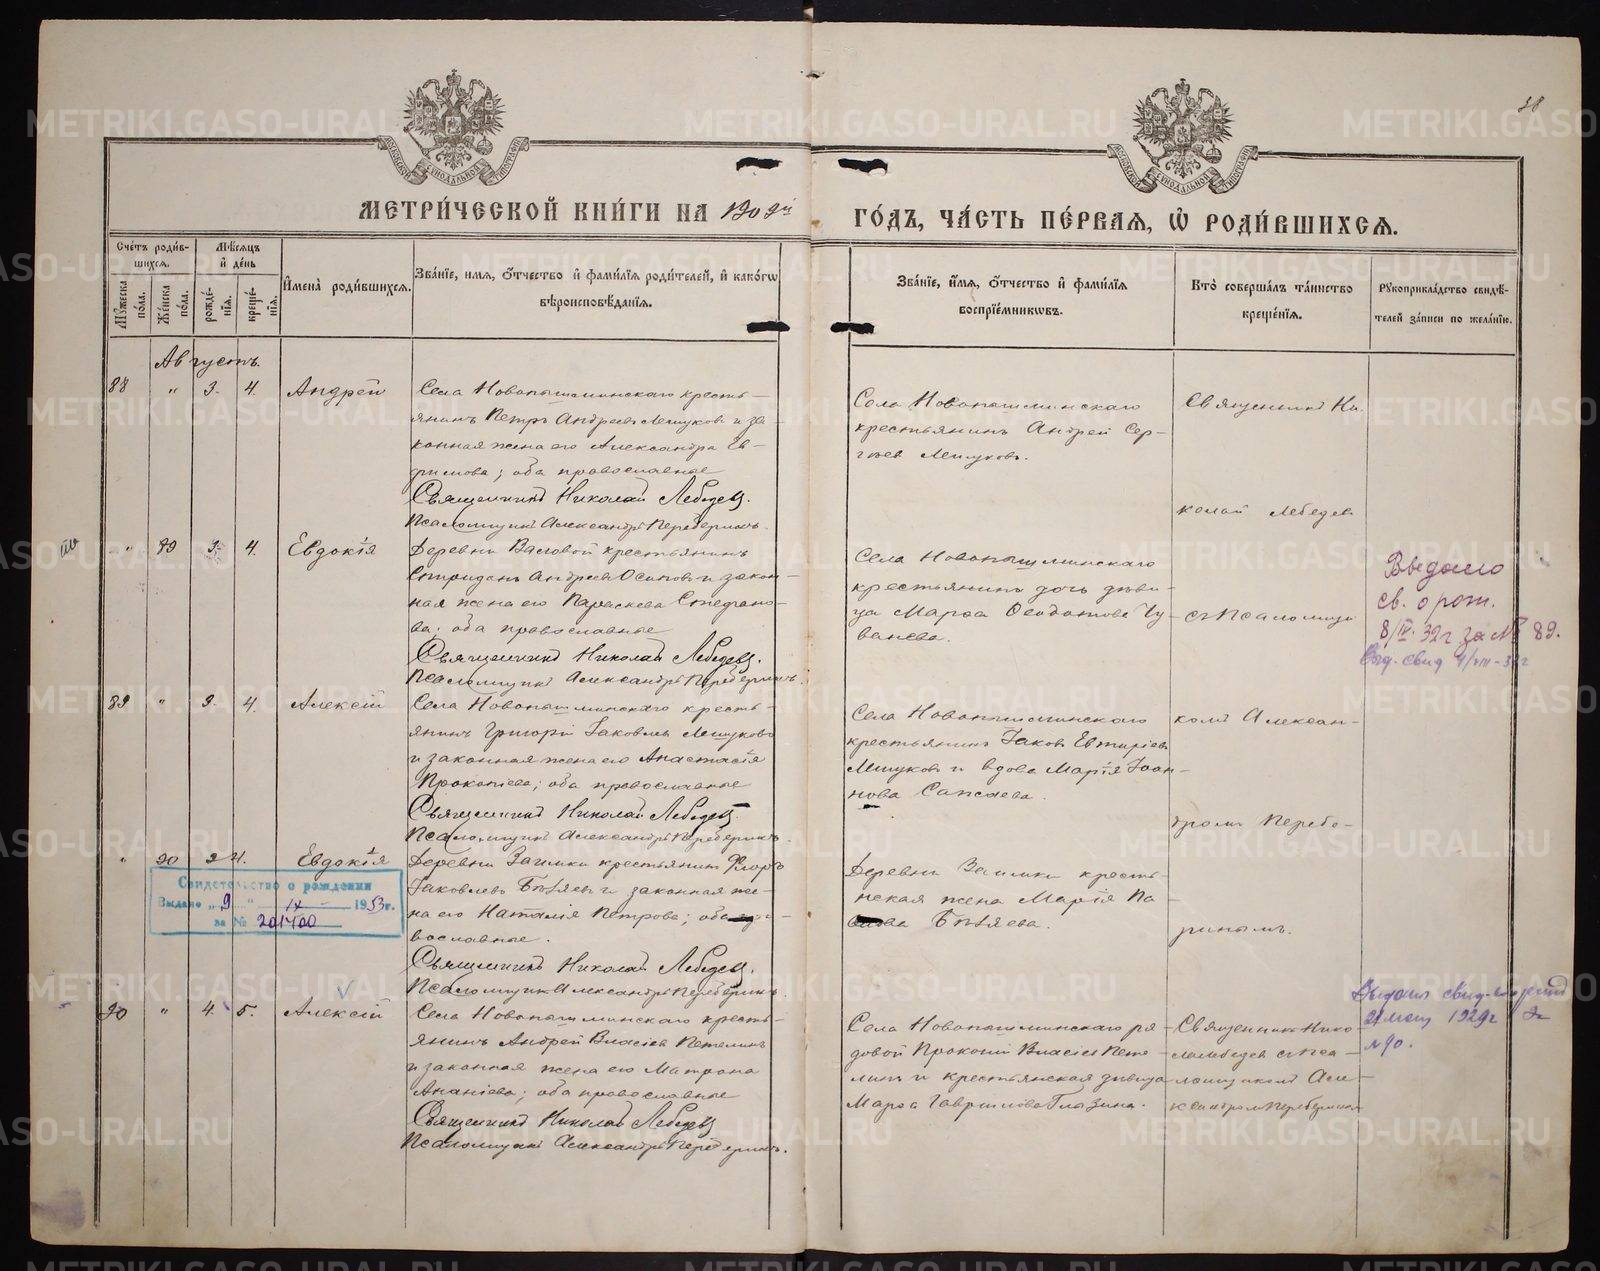 38
МОСКОВСКОЙ СѴНОДАЛЬНОЙ ТИПОГРАФІИ
МОСКОВСКОЙ СѴНОДАЛЬНОЙ ТИПОГРАФІИ
МЕТРИ́ЧЕСКОЙ КНИ́ГИ НА 1909й
ГО́ДЪ, ЧА́СТЬ ПЕ́РВАЯ, Ѡ҆ РОДИ́ВШИХСЯ.
Сче́тъ роди́в-
шихся.
Му́жеска по́ла.
Же́нска по́ла.
Мѣ́сяцъ и҆ де́нь
рожде́-
нія.
креще́-
нія.
И҆мена̀ роди́вшихся.
Зва́ніе, имя, ѻ҆́тчество и҆ фами́лїя роди́телей, и҆ како́гѡ
вѣроисповѣ́данія.
Зва́ніе, и҆́мя, ѻ҆́тчество и҆ фами́лїя
воспріе́мникѡвъ.
Кто̀ соверша́лъ та́инство
креще́нія.
Рꙋкоприкла́дство свидѣ́-
телей за́писи по жела́нію.
Августъ.
88 " 3. 4. Андрей
Села Новопышминскаго кресть-
янинъ Петръ Андреевъ Мешуковъ и за
конная жена его Александра Ев-
фимова; оба православные
Священникъ Николай Лебедевъ.
Псаломщикъ Александръ Переберинъ.
Села Новопышминскаго
крестьянинъ Андрей Сер-
гѣевъ Мешуковъ.
Священникъ Ни
колай Лебедевъ
" 89 3. 4. Евдокія
Деревни Валовой крестьянинъ
Спиридонъ Андреевъ Осиповъ и закон-
ная жена его Параскева Стефано-
ва; оба православные
Священникъ Николай Лебедевъ.
Псаломщикъ Александръ Переберинъ.
Села Новопышминскаго
крестьянина дочь дѣви-
ца Марѳа Ѳеодотова Чу-
ваева.
съ Псаломщи
Выдано
св. о рож.
8/IV. 32 г за № 89.
Выд. свид 4/VIII-32 г
89 " 2. 4. Алексій
Села Новопышминскаго кресть-
янинъ Григорій Іаковлевъ Мешуковъ
и законная жена его Анастасія
Прокопіева; оба православные
Священникъ Николай Лебедевъ.
Псаломщикъ Александръ Переберинъ.
Села Новопышминскаго
крестьянинъ Іаковъ Евтихіевъ
Мешуковъ и вдова Марія Іоан-
нова Сапаева.
комъ Алексан-
дромъ Перебе-
" 90 2 4. Евдокія
Деревни Заимки крестьянинъ Флоръ
Іаковлевъ Бѣляевъ и законная же-
на его Наталія Петрова; оба пра-
вославные.
Священникъ Николай Лебедевъ.
Псаломщикъ Александръ Переберинъ.
Деревни Заимки кресть-
янская жена Марія Па
Бѣляева.
ринымъ.
Свидетельство о рождении
Выдано „9" IX 1953 г.
за № 201400
90 " 4. 5. Алексій
Села Новопышминскаго кресть-
янинъ Андрей Власіевъ Петелинъ
и законная жена его Матрона
Ананіева; оба православные
Священникъ Николай Лебедевъ
Псаломщикъ Александръ Переберинъ.
Села Новопышминскаго ря
довой Прокопій Власіевъ Пете-
линъ и крестьянская дѣвица
Марѳа Гавриилова Глазина.
Священникъ Нико
лай Лебедевъ съ Пса-
ломщикомъ Але-
ксандромъ Переберинымъ
21 1929 г за
№ 90.
METRIKI.GASO-URAL.RU